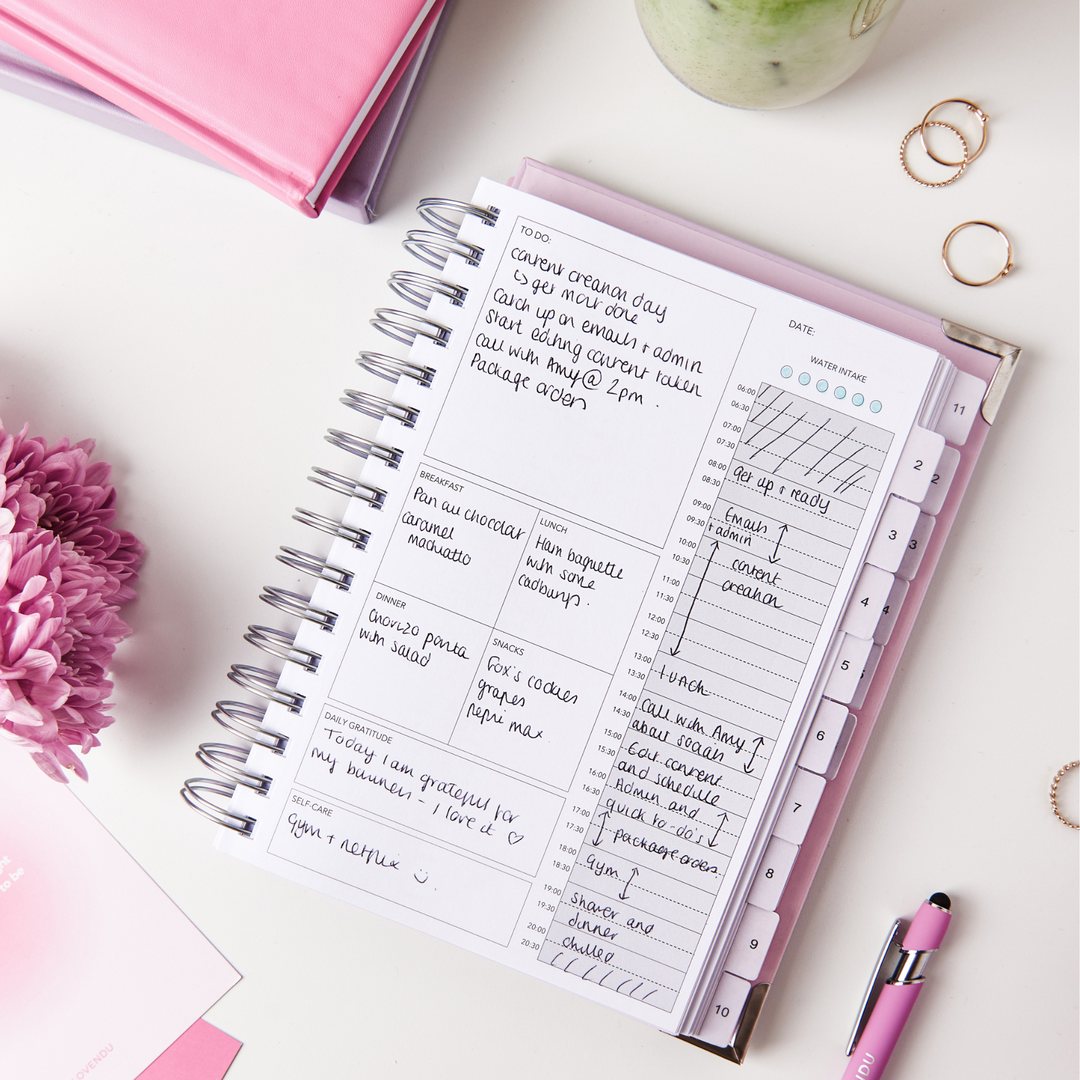 TO DO:
content creation day
↳ get most done
Catch up on emails + admin
Start editing content taken
Call with Amy @ 2pm.
Package orders
DATE:
WATER INTAKE
BREAKFAST
Pan au chocolat
caramel
machiatto
LUNCH
Ham baguette
with some
cadburys.
DINNER
Chorizo pasta
with salad
SNACKS
Fox's cookies
grapes
pepsi max
DAILY GRATITUDE
Today I am grateful for
my business - I love it ♡
SELF-CARE
gym + netflix
06:00
06:30
07:00
07:30
08:00
08:30
get up + ready
09:00
Emails
09:30
+ admin
10:00
10:30
content
creation
11:00
11:30
12:00
12:30
13:00
13:30
LUNCH
14:00
Call with Amy
14:30
about socials
15:00
Edit content
15:30
and schedule
16:00
Admin and
16:30
quick to-do's
17:00
17:30
package orders.
18:00
gym
18:30
19:00
shower and
19:30
dinner
20:00
chilled
20:30
11
2
2
3
3
4
4
5
5
6
7
8
9
10
ght
to be
LOVENDU
NDU